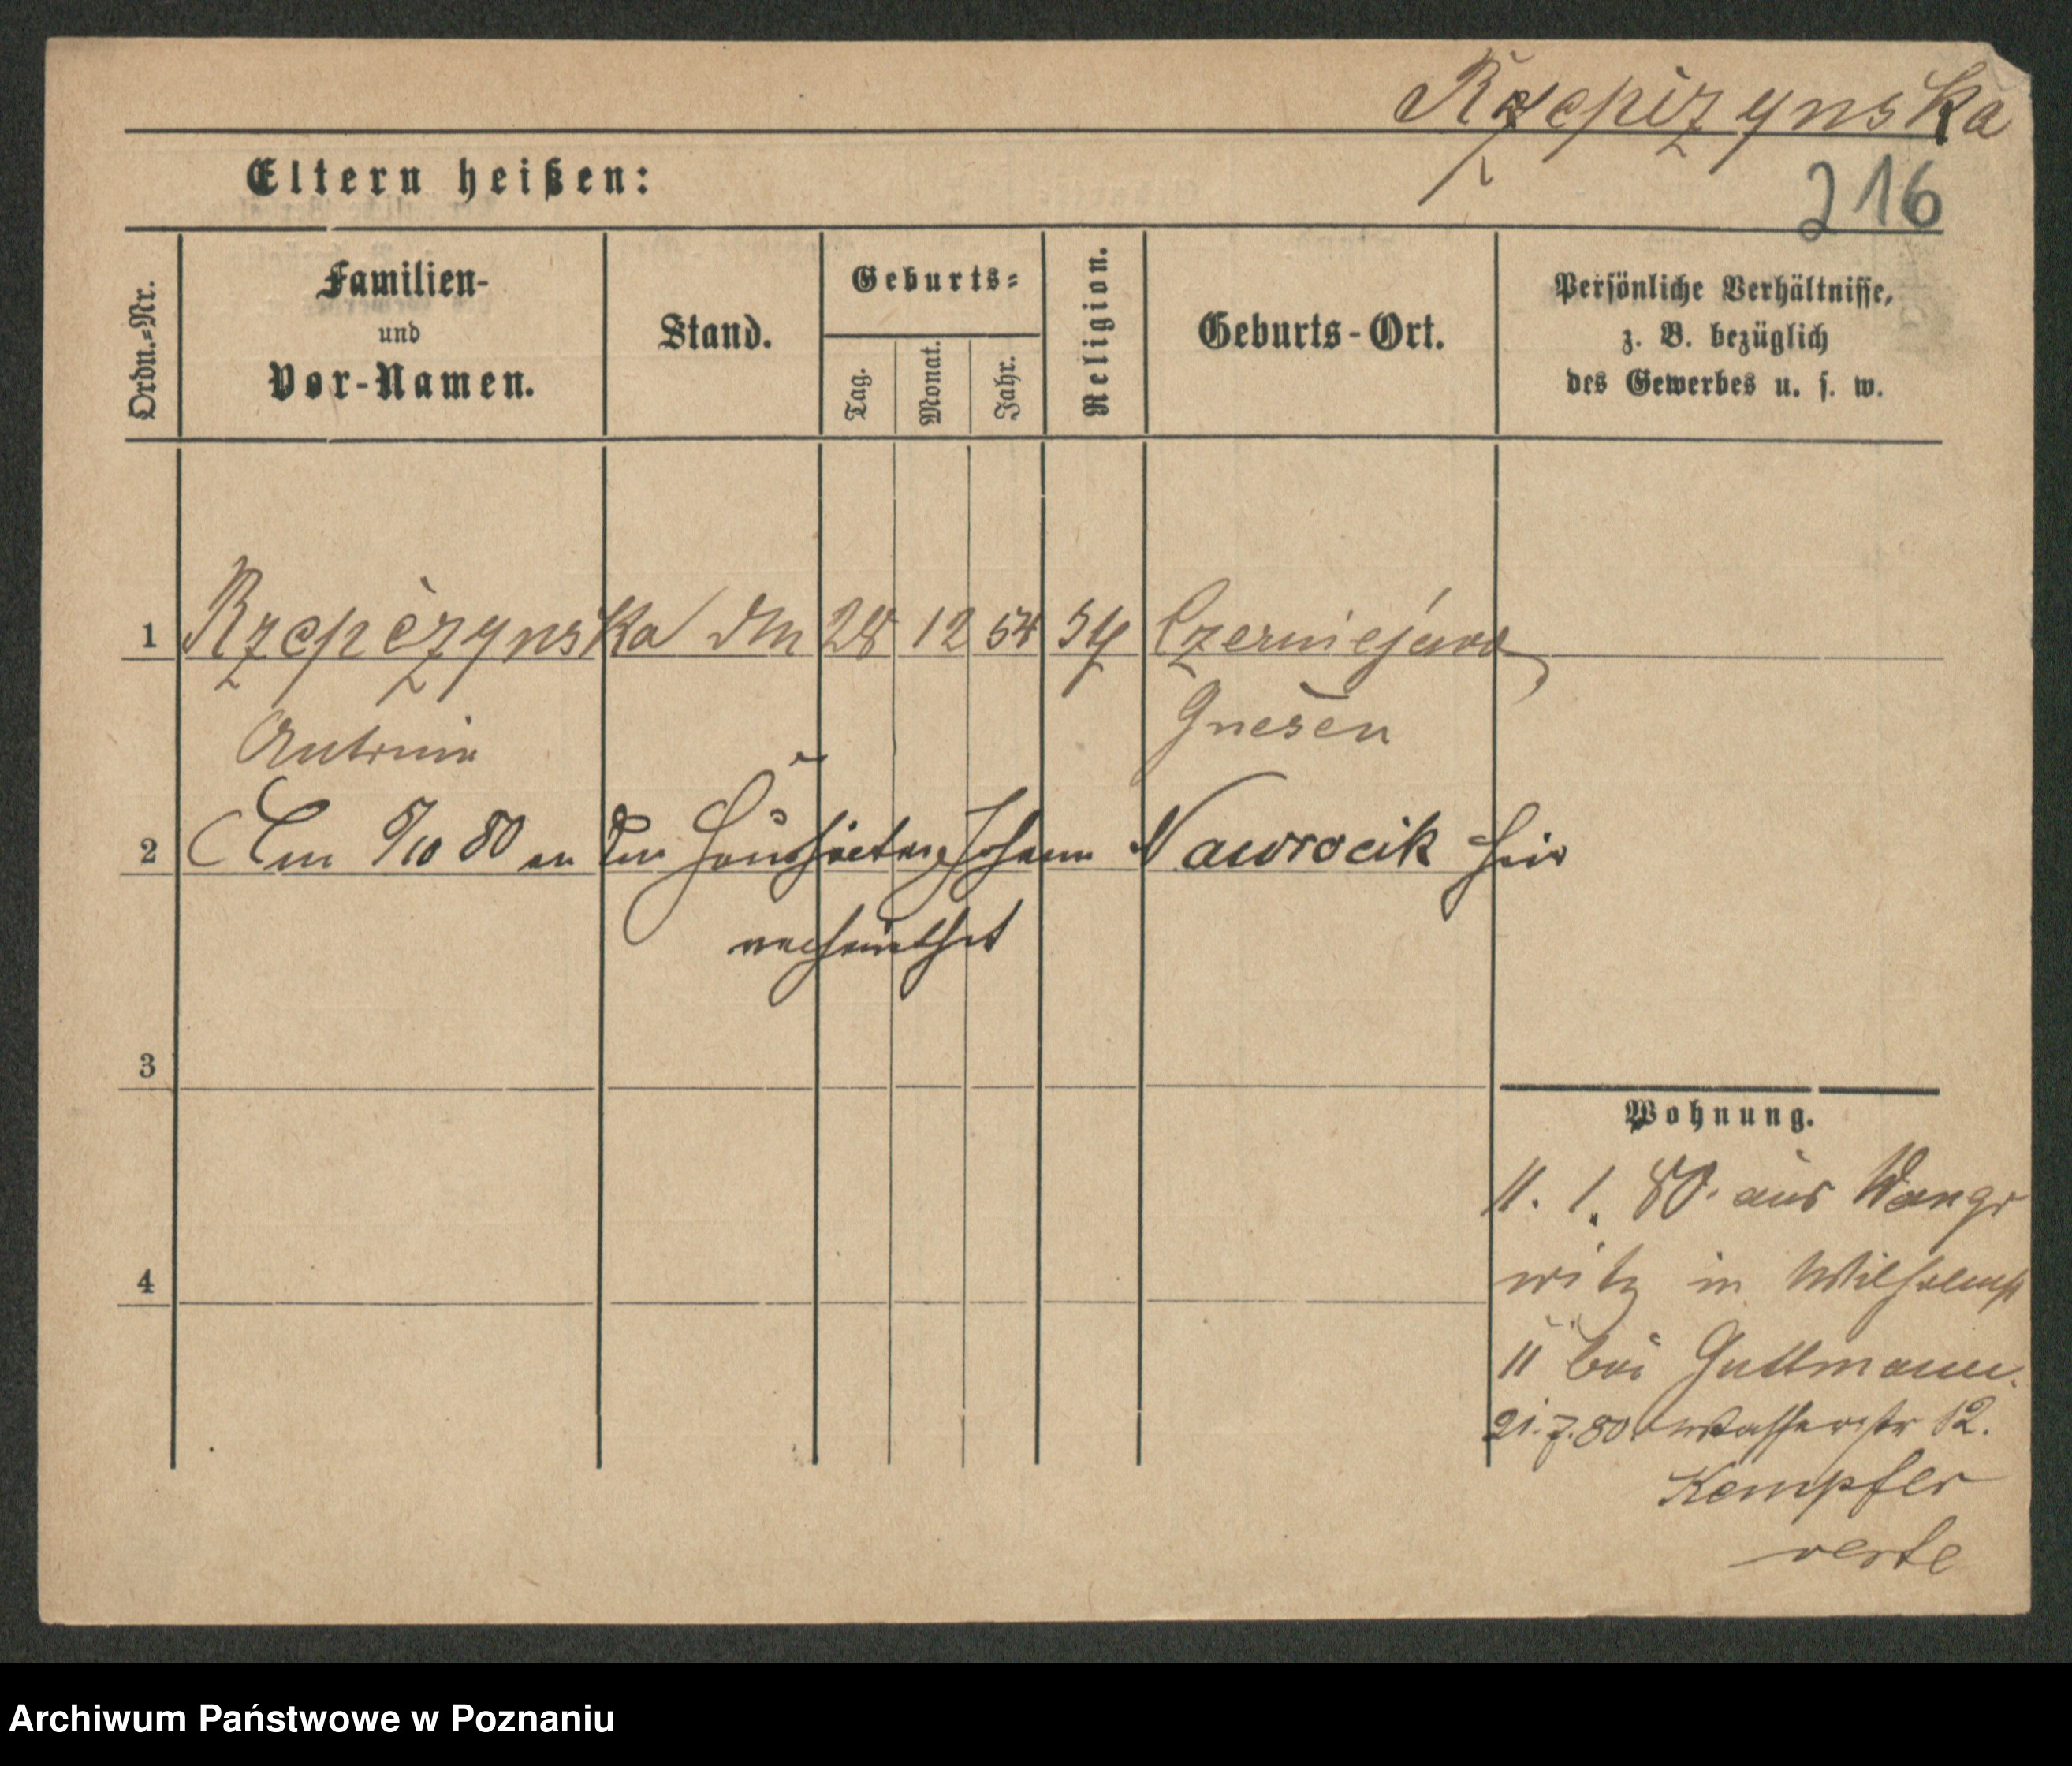 Rzepizynska
216
Eltern heißen:
Ordn.=Nr.
Familien-
und
Vor-Namen.
Stand.
Geburts=
Tag.
Monat.
Jahr.
Religion.
Geburts-Ort.
Persönliche Verhältnisse,
z. B. bezüglich
des Gewerbes u. s. w.
1 Rzepizynska 28 12 54 Czerniejewo
Antonie Gnesen
2 Am 5/10 80 an den Johann Nawrocik hier
verheirathet
3
Wohnung.
11. 1. 80. aus Wangr
4
witz in Wilhelmst
11 bei Guttmann.
21.7.80 Wasserstr 12.
Kempfer
verte
Archiwum Państwowe w Poznaniu